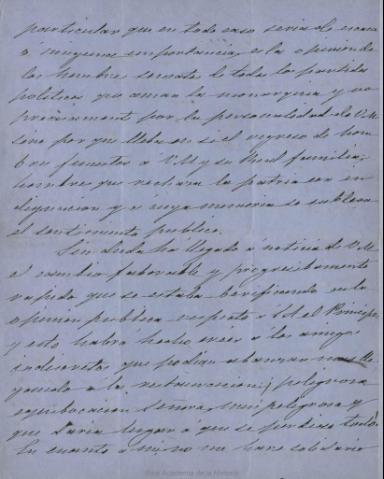 particular que en todo caso seria de escasa
ó ninguna importancia, es la opinion de
los hombres sensatos de todos los partidos
politicos que aman la monarquia y no
precisamente por la personalidad de V.M.
sino por que lleba en si el regreso de hom
bres funestos a V.M. y su Real familia;
hombres que rechaza la patria con in
dignacion y a cuya memoria se subleva
el sentimiento publico.
Sin duda há llegado á noticia de V.M.
el cambio faborable y progresibamente
rapido que se estaba berificando en la
opinion publica respecto a S.A. el Principe,
y esto habra hecho creer á los amigos
indiscretos que podian abanzar mas lle
gando a la restauracion; ¡peligrosa
equibocacion Señora, muy peligrosa y
que daria lugar a que se perdiese todo.
En cuanto a mi no me hare solidario
Real Academia de la Historia